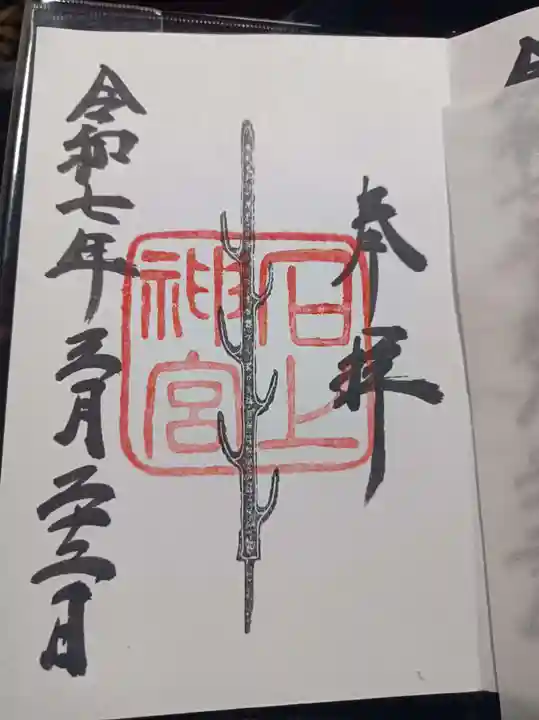 奉拝
石上
神宮
令和七年三月二十二日